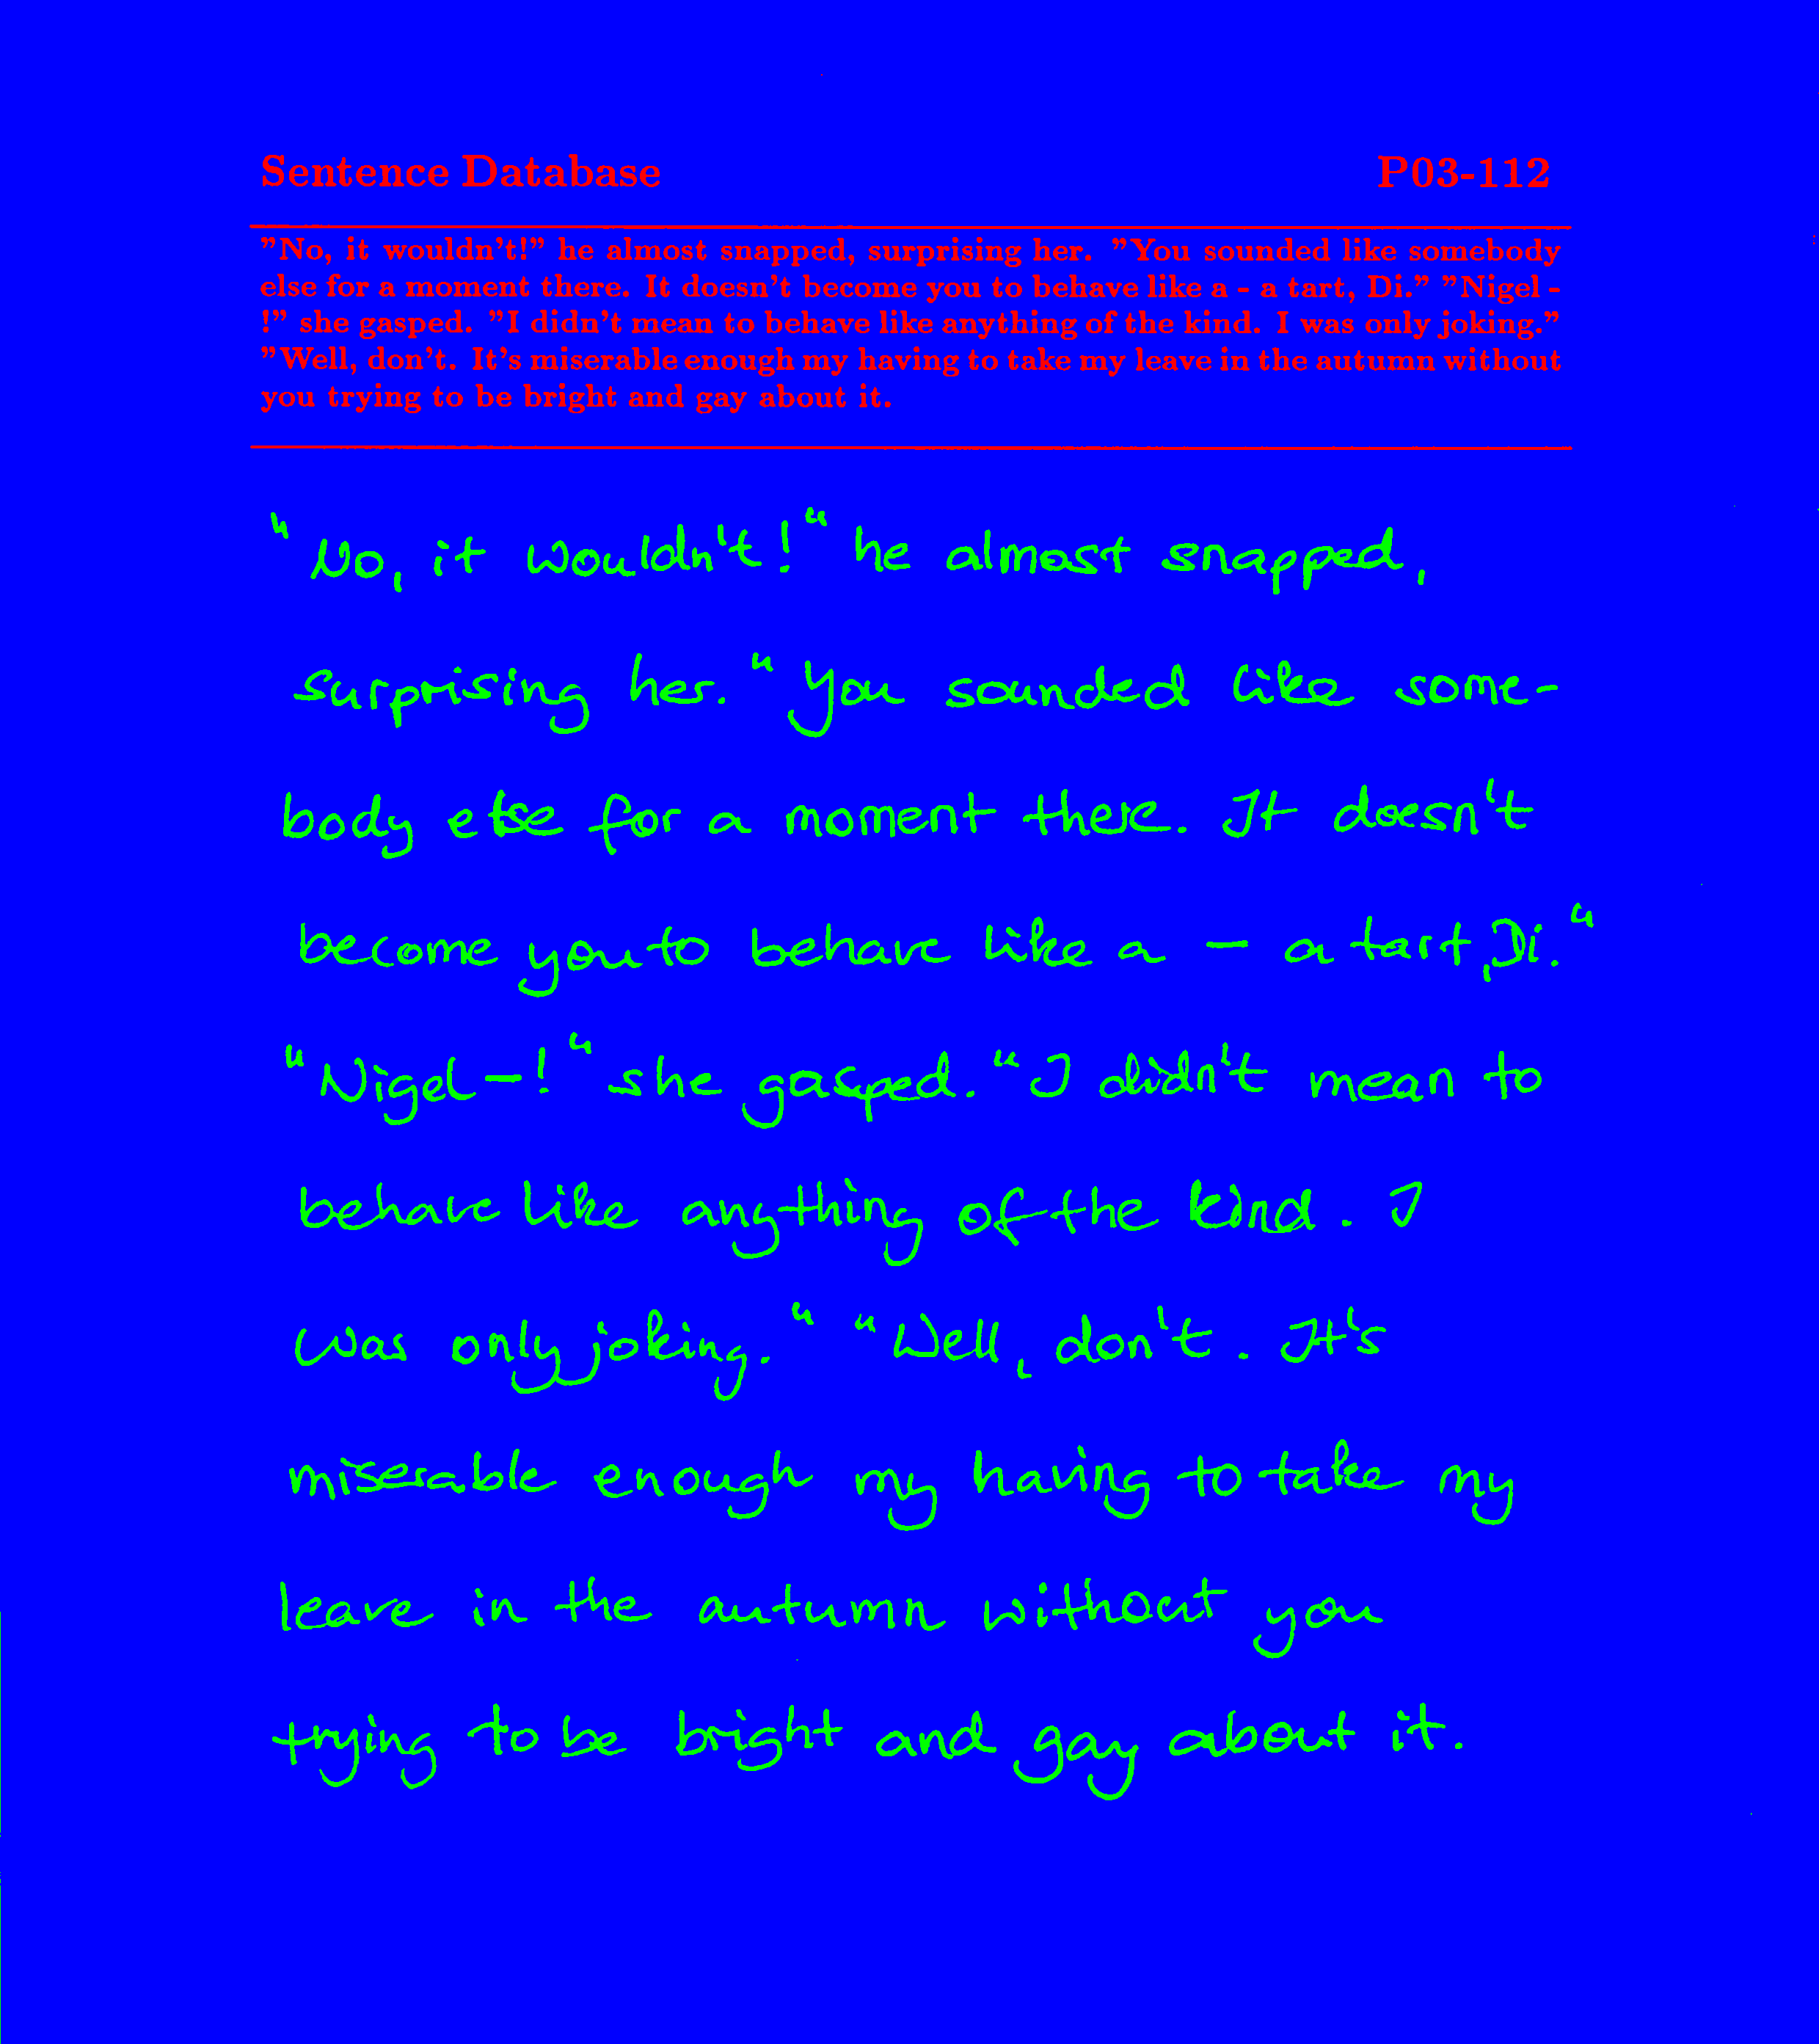 Sentence Database P03-112
"No, it wouldn't!" he almost snapped, surprising her. "You sounded like somebody
else for a moment there. It doesn't become you to behave like a - a tart, Di." "Nigel -
!" she gasped. "I didn't mean to behave like anything of the kind. I was only joking."
"Well, don't. It's miserable enough my having to take my leave in the autumn without
you trying to be bright and gay about it.
"No, it wouldn't!" he almost snapped,
surprising her. "You sounded like some-
body else for a moment there. It doesn't
become you to behave like a - a tart, Di."
"Nigel -!" she gasped. "I didn't mean to
behave like anything of the kind. I
was only joking." "Well, don't. It's
miserable enough my having to take my
leave in the autumn without you
trying to be bright and gay about it.